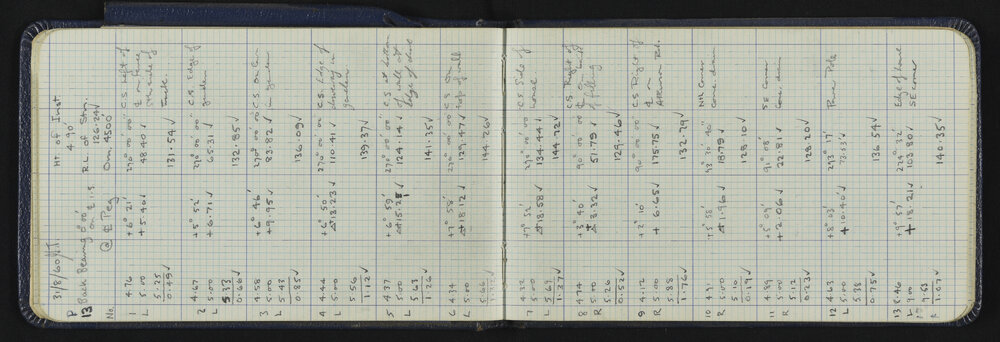 31/8/60
P 13
Back Bearing 0° 00'
on ⅊ 1.5
@ ⅊ Peg
Ht. of Inst.
4.90
R.L. of Stn.
126.24✓
Om. 4500
No.
1 4.76 +6° 21' 270° 00' 00" C.S. Left of
L 5.00 +5.40✓ 48.40✓ ⅊ on fence
5.25 131.54✓
0.49✓
2 4.67 +5° 52' 270° 00' 00" C.S. Edge of
L 5.00 +6.71✓ garden
5.33 132.85✓
0.66✓
3 4.58 +6° 46' 270° 00' 00" C.S. on
L 5.00 +9.95✓ 83.82✓ in garden
5.43 136.09✓
0.85✓
4 4.44 +6° 50' 270° 00' 00" C.S. Edge of
L 5.00 +13.23✓ 110.41✓ driveway in
5.56 139.37✓ garden
1.12✓
5 4.37 +6° 59' 270° 00' 00" C.S. at bottom
L 5.00 124.14✓ of wall at
5.63 141.35✓ Edge of
1.26✓
6 4.34 +7° 58' 270° 00' 00" C.S. on
L 5.00 +18.12✓ 129.47✓ top of wall
5.66 144.26✓
7 4.32 +7° 52' 270° 00' 00" C.S. Side of
L 5.00 +18.58✓ 134.44✓ house
5.69 144.72✓
1.37✓
8 4.74 +3° 40' 90° 00' 00" C.S. Right of
R 5.00 +3.32✓ 51.79✓ ⅊ on
5.26 129.46✓ of filling
0.52✓
9 4.12 +2° 10' 90° 00' 00" C.S. Right of
R 5.00 +6.65✓ 175.75✓ ⅊ on
5.88 132.79✓ Atkinson Rd.
1.76✓
10 4.91 +5° 58' 43° 30' 40" NR Corner
R 5.00 +1.96✓ 18.79✓ Conc. drain
5.10 128.10✓
0.19✓
11 4.89 +5° 09' 91° 08' SE Corner
R 5.00 +2.06✓ 22.81✓ Conc. drain
5.12 128.20✓
0.23✓
12 4.63 +8° 03' 293° 17' Pine Pole
L 5.00 +10.40✓ 73.53✓
5.38 136.54✓
0.75✓
13 8.46 +9° 57' 224° 32' Edge of house
L 9.00 +18.21✓ 103.80✓ SE corner
9.53 140.35✓
1.07✓